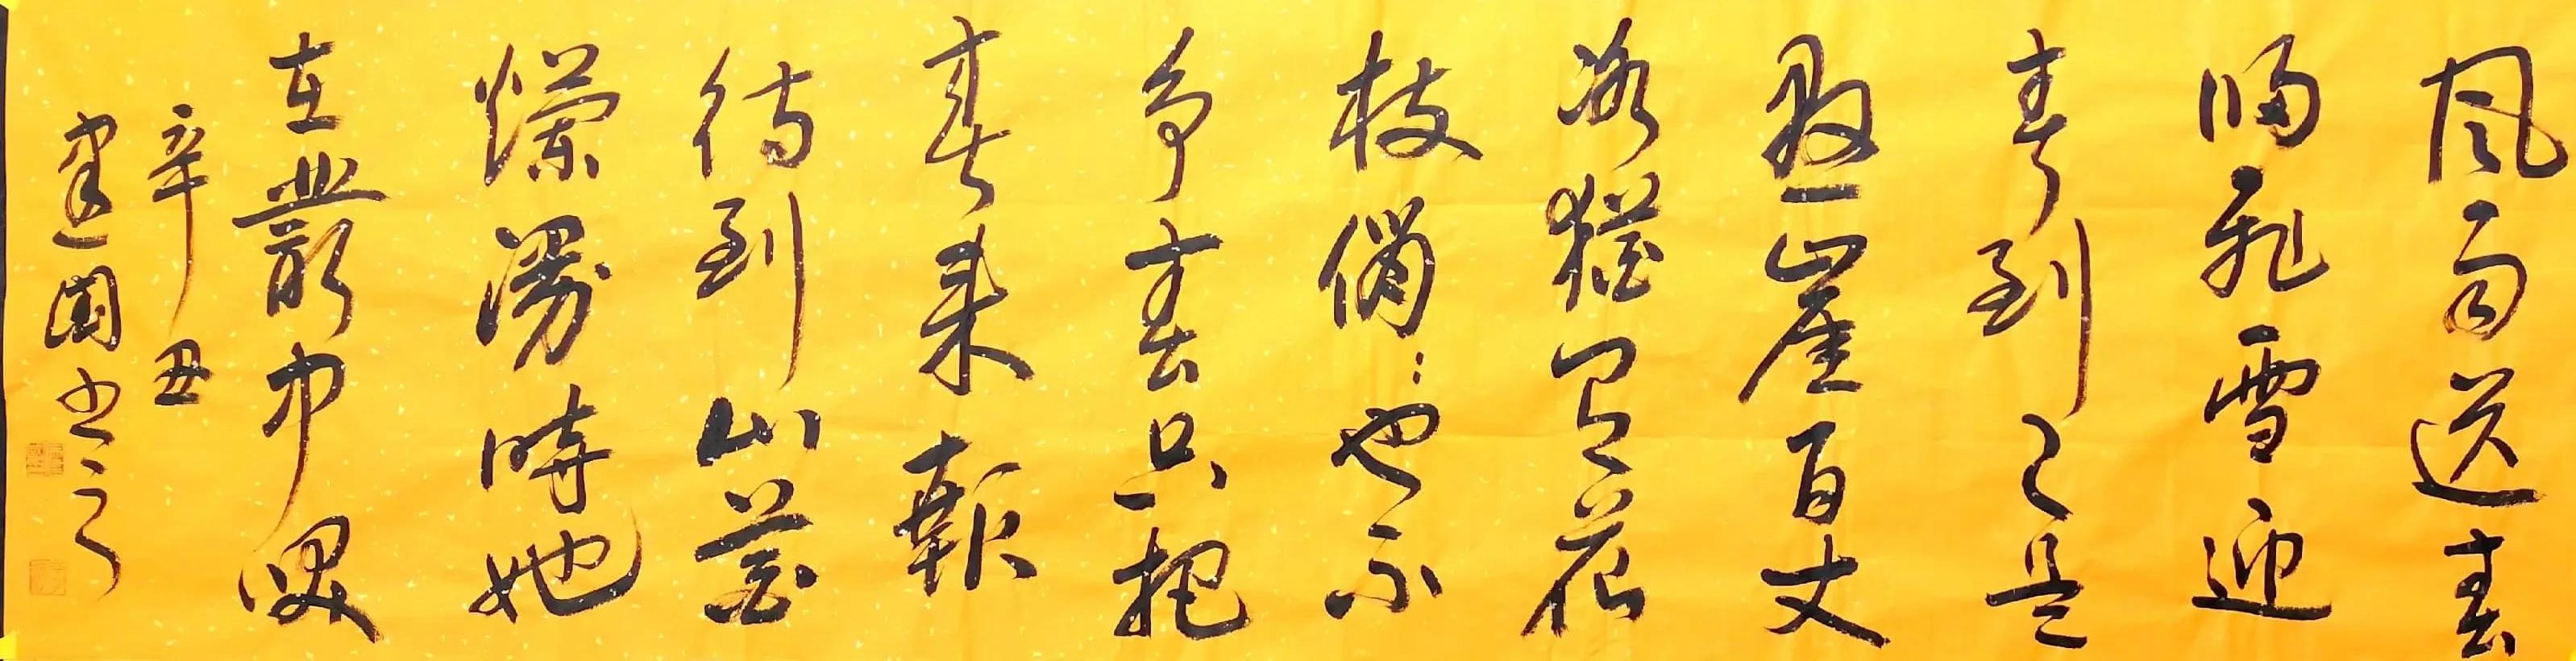 风雨送春
归飛雪迎
春到已是
悬崖百丈
冰猶有花
枝俏俏也不
争春只把
春来報
待到山花
爛漫時她
在叢中咲
辛丑
建國书之